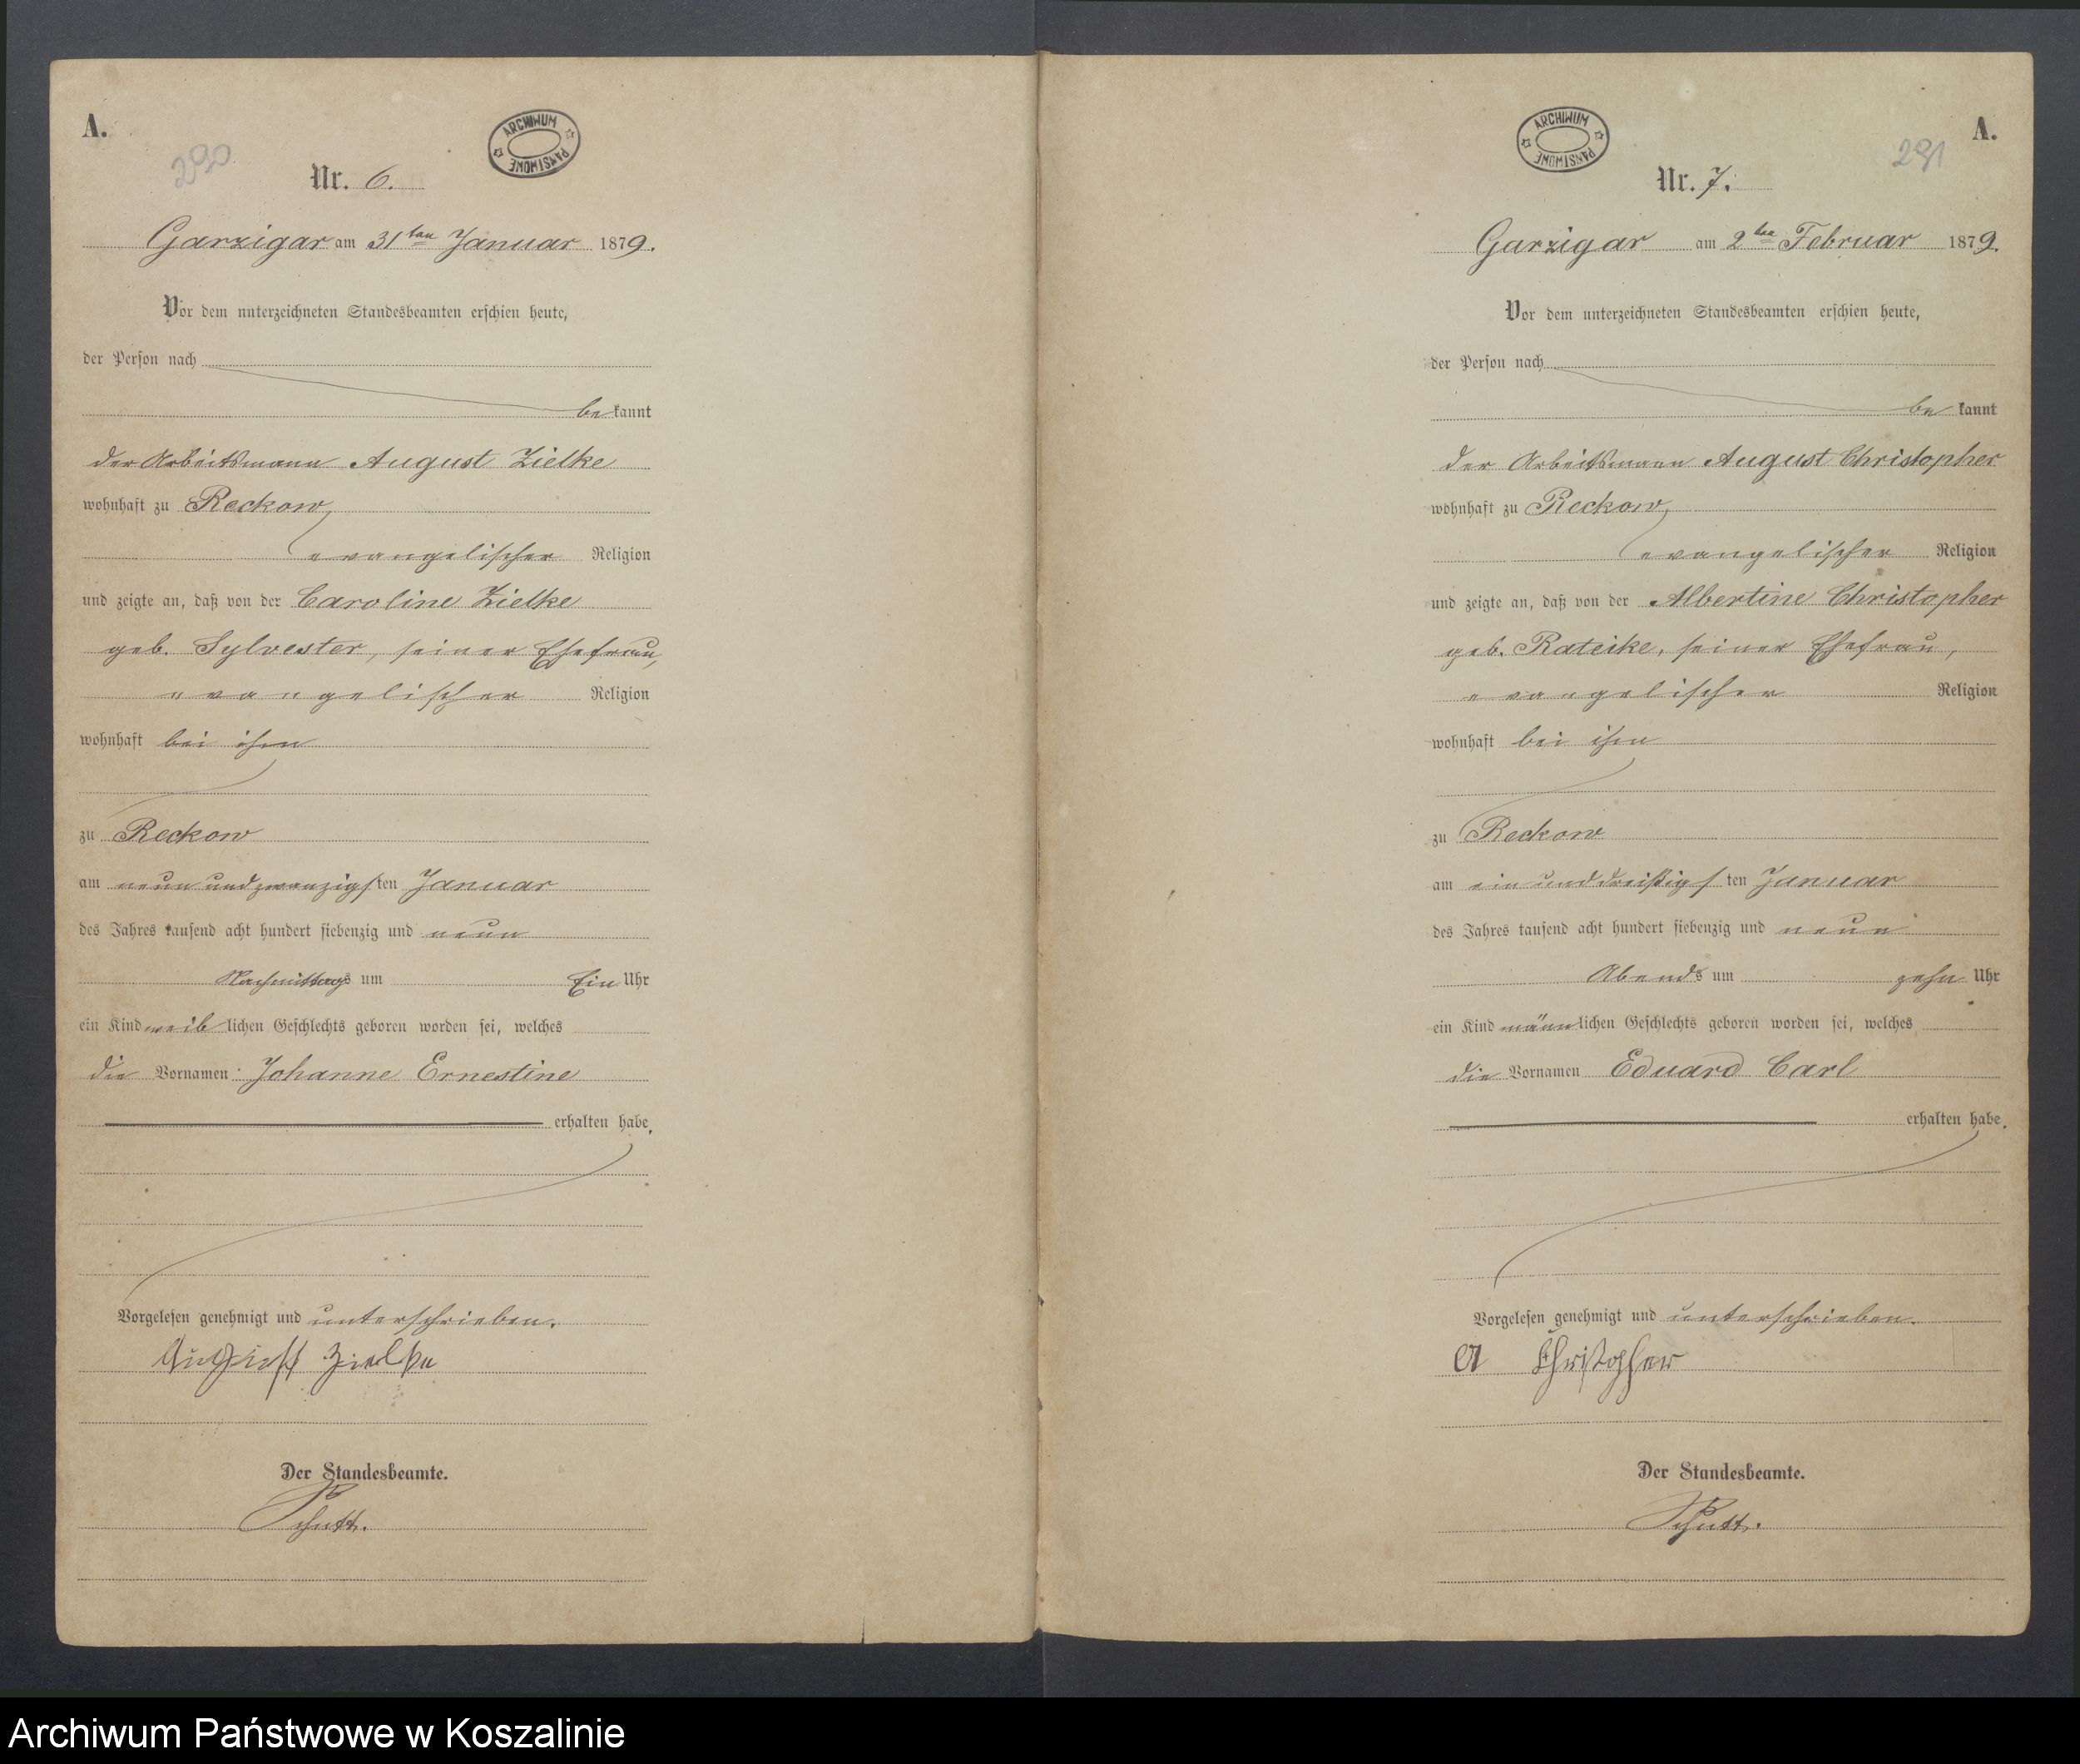 A.
290
ARCHIWUM PAŃSTWOWE
Nr. 6.
Garzigar am 31ten Januar 1879.
Vor dem unterzeichneten Standesbeamten erschien heute,
der Person nach
bekannt
der Arbeitsmann August Zielke
wohnhaft zu Reckow,
evangelischer Religion
und zeigte an, daß von der Caroline Zielke
geb. Sylvester, seiner Ehefrau,
evangelischer Religion
wohnhaft bei ihm
zu Reckow
am neun und zwanzigsten Januar
des Jahres tausend acht hundert siebenzig und neun
Nachmittags um Ein Uhr
ein Kind weiblichen Geschlechts geboren worden sei, welches
die Vornamen Johanne Ernestine
erhalten habe.
Vorgelesen genehmigt und unterschrieben.
August Zielke
Der Standesbeamte.
Schutt.
A.
291
ARCHIWUM PAŃSTWOWE
Nr. 7.
Garzigar am 2ten Februar 1879.
Vor dem unterzeichneten Standesbeamten erschien heute,
der Person nach
bekannt
der Arbeitsmann August Christopher
wohnhaft zu Reckow,
evangelischer Religion
und zeigte an, daß von der Albertine Christopher
geb. Rateike, seiner Ehefrau,
evangelischer Religion
wohnhaft bei ihm
zu Reckow
am ein und dreißigsten Januar
des Jahres tausend acht hundert siebenzig und neun
Abends um zehn Uhr
ein Kind männlichen Geschlechts geboren worden sei, welches
die Vornamen Eduard Carl
erhalten habe.
Vorgelesen genehmigt und unterschrieben.
A Christopher
Der Standesbeamte.
Schutt.
Archiwum Państwowe w Koszalinie